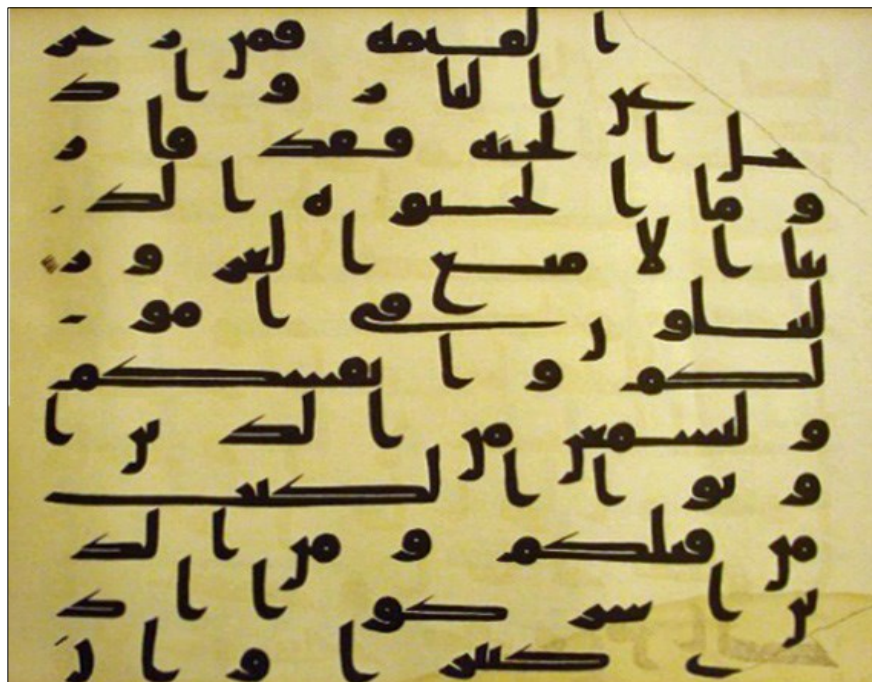 القيمة فمن زحز
عن النار واد
خل الجنة فقد فاز
وما الحيوة الد
نيا الا متع الغرور
لتبلون في امو
لكم وانفسكم
ولتسمعن من الذين ا
وتوا الكتب
من قبلكم ومن الذ
ين اشركوا اذ
ى كثيرا وان